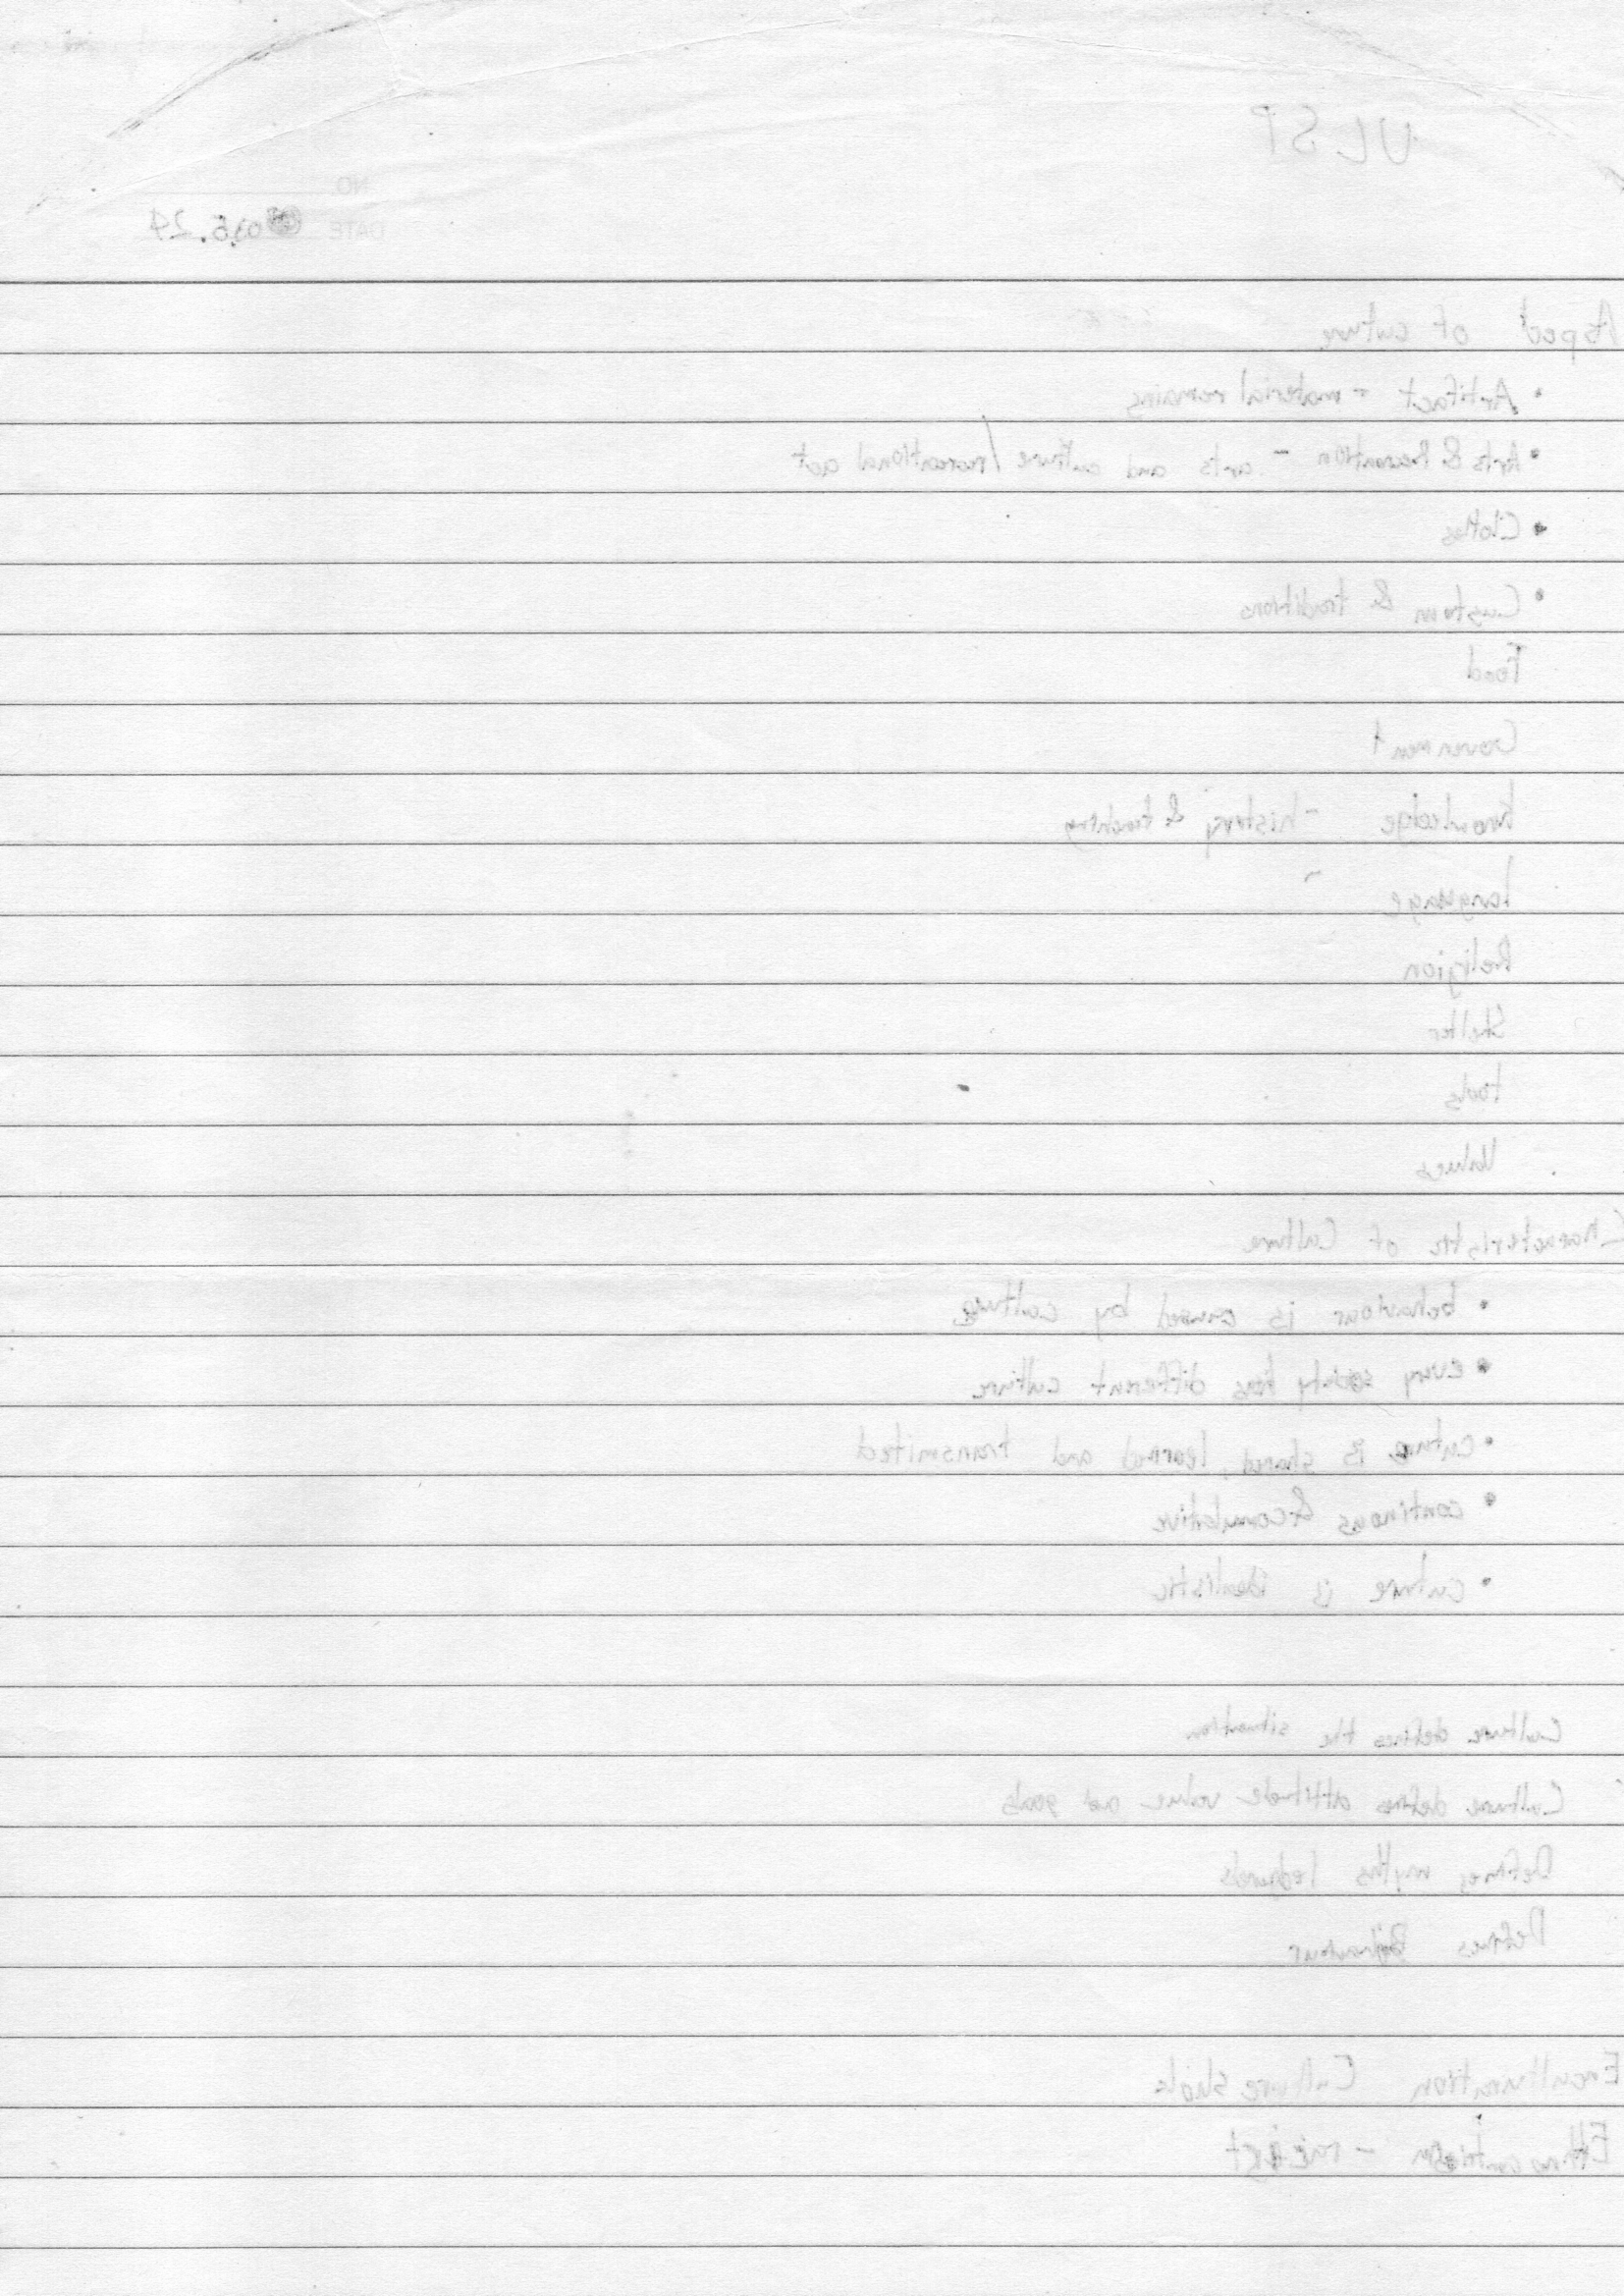 UCSP
NO.
DATE 03.5.24
Aspect of culture
• Artifact - material remains
• Arts & Recreation - arts and culture/recreational act
• Clothes
• Custom & traditions
Food
Government
Knowledge - history & teaching
language
Religion
Shelter
tools
Values
Characteristic of Culture
• behaviour is caused by culture
• every society has different culture
• culture is shared, learned and transmited
• continous & comulative
• culture is idealistic
Culture defines the situation
Culture defines attitude value and goals
Defines myths
Defines Behaviour
Enculturation Culture
- racist